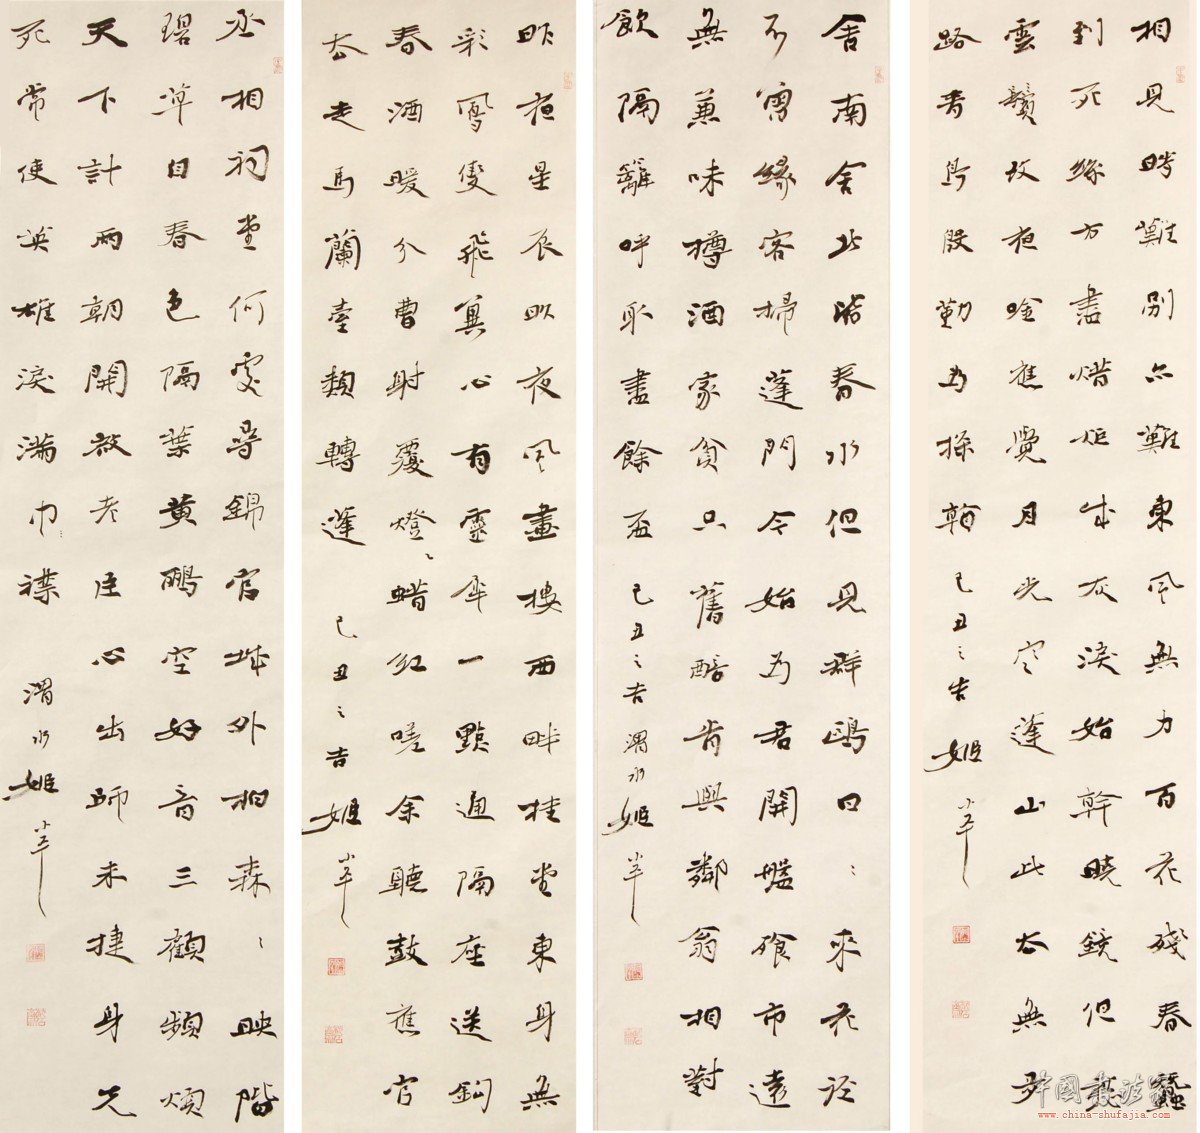 相見時難別亦難東風無力百花殘春蠶
到死絲方盡蜡炬成灰淚始幹曉鏡但愁
雲鬢改夜吟應覺月光寒蓬山此去無多
路青鳥殷勤為探
己丑之吉 姬小平
舍南舍北皆春水但見群鷗日々來花徑
不曾緣客掃蓬門今始為君開盤飧市遠
無兼味樽酒家貧只舊醅肯與鄰翁相對
飲隔籬呼取盡餘盃 己丑之吉渭水姬小平
昨夜星辰昨夜風畫樓西畔桂堂東身無
彩鳳雙飛翼心有靈犀一點通隔座送鈎
春酒暖分曹射覆燈蜡紅嗟余聽鼓應官
去走馬蘭臺類轉蓬 己丑之吉 姬小平
丞相祠堂何處尋錦官城外柏森々映階
碧草自春色隔葉黄鸝空好音三顧頻煩
天下計兩朝開啟老臣心出師未捷身先
死常使英雄淚滿巾襟 渭水姬小平
中國書法家
www.china-shufajia.com